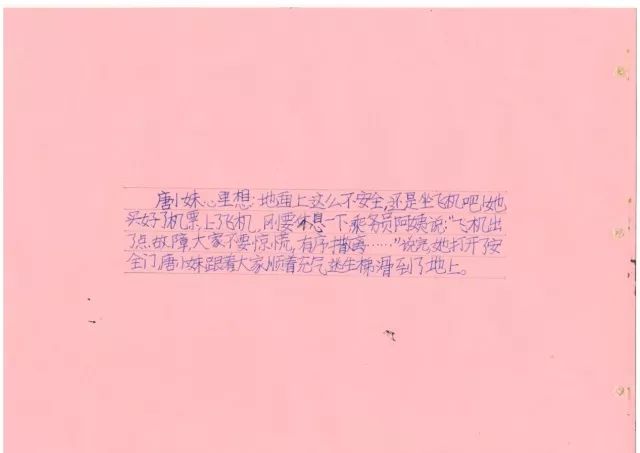 唐小妹心里想:地面上这么不安全,还是坐飞机吧!她
买好了机票上了飞机,刚要休息一下,乘务员阿姨说:"飞机出
了点故障,大家不要惊慌,有序撤离……"说完,她打开了安
全门,唐小妹跟着大家顺着充气逃生梯滑到了地上。